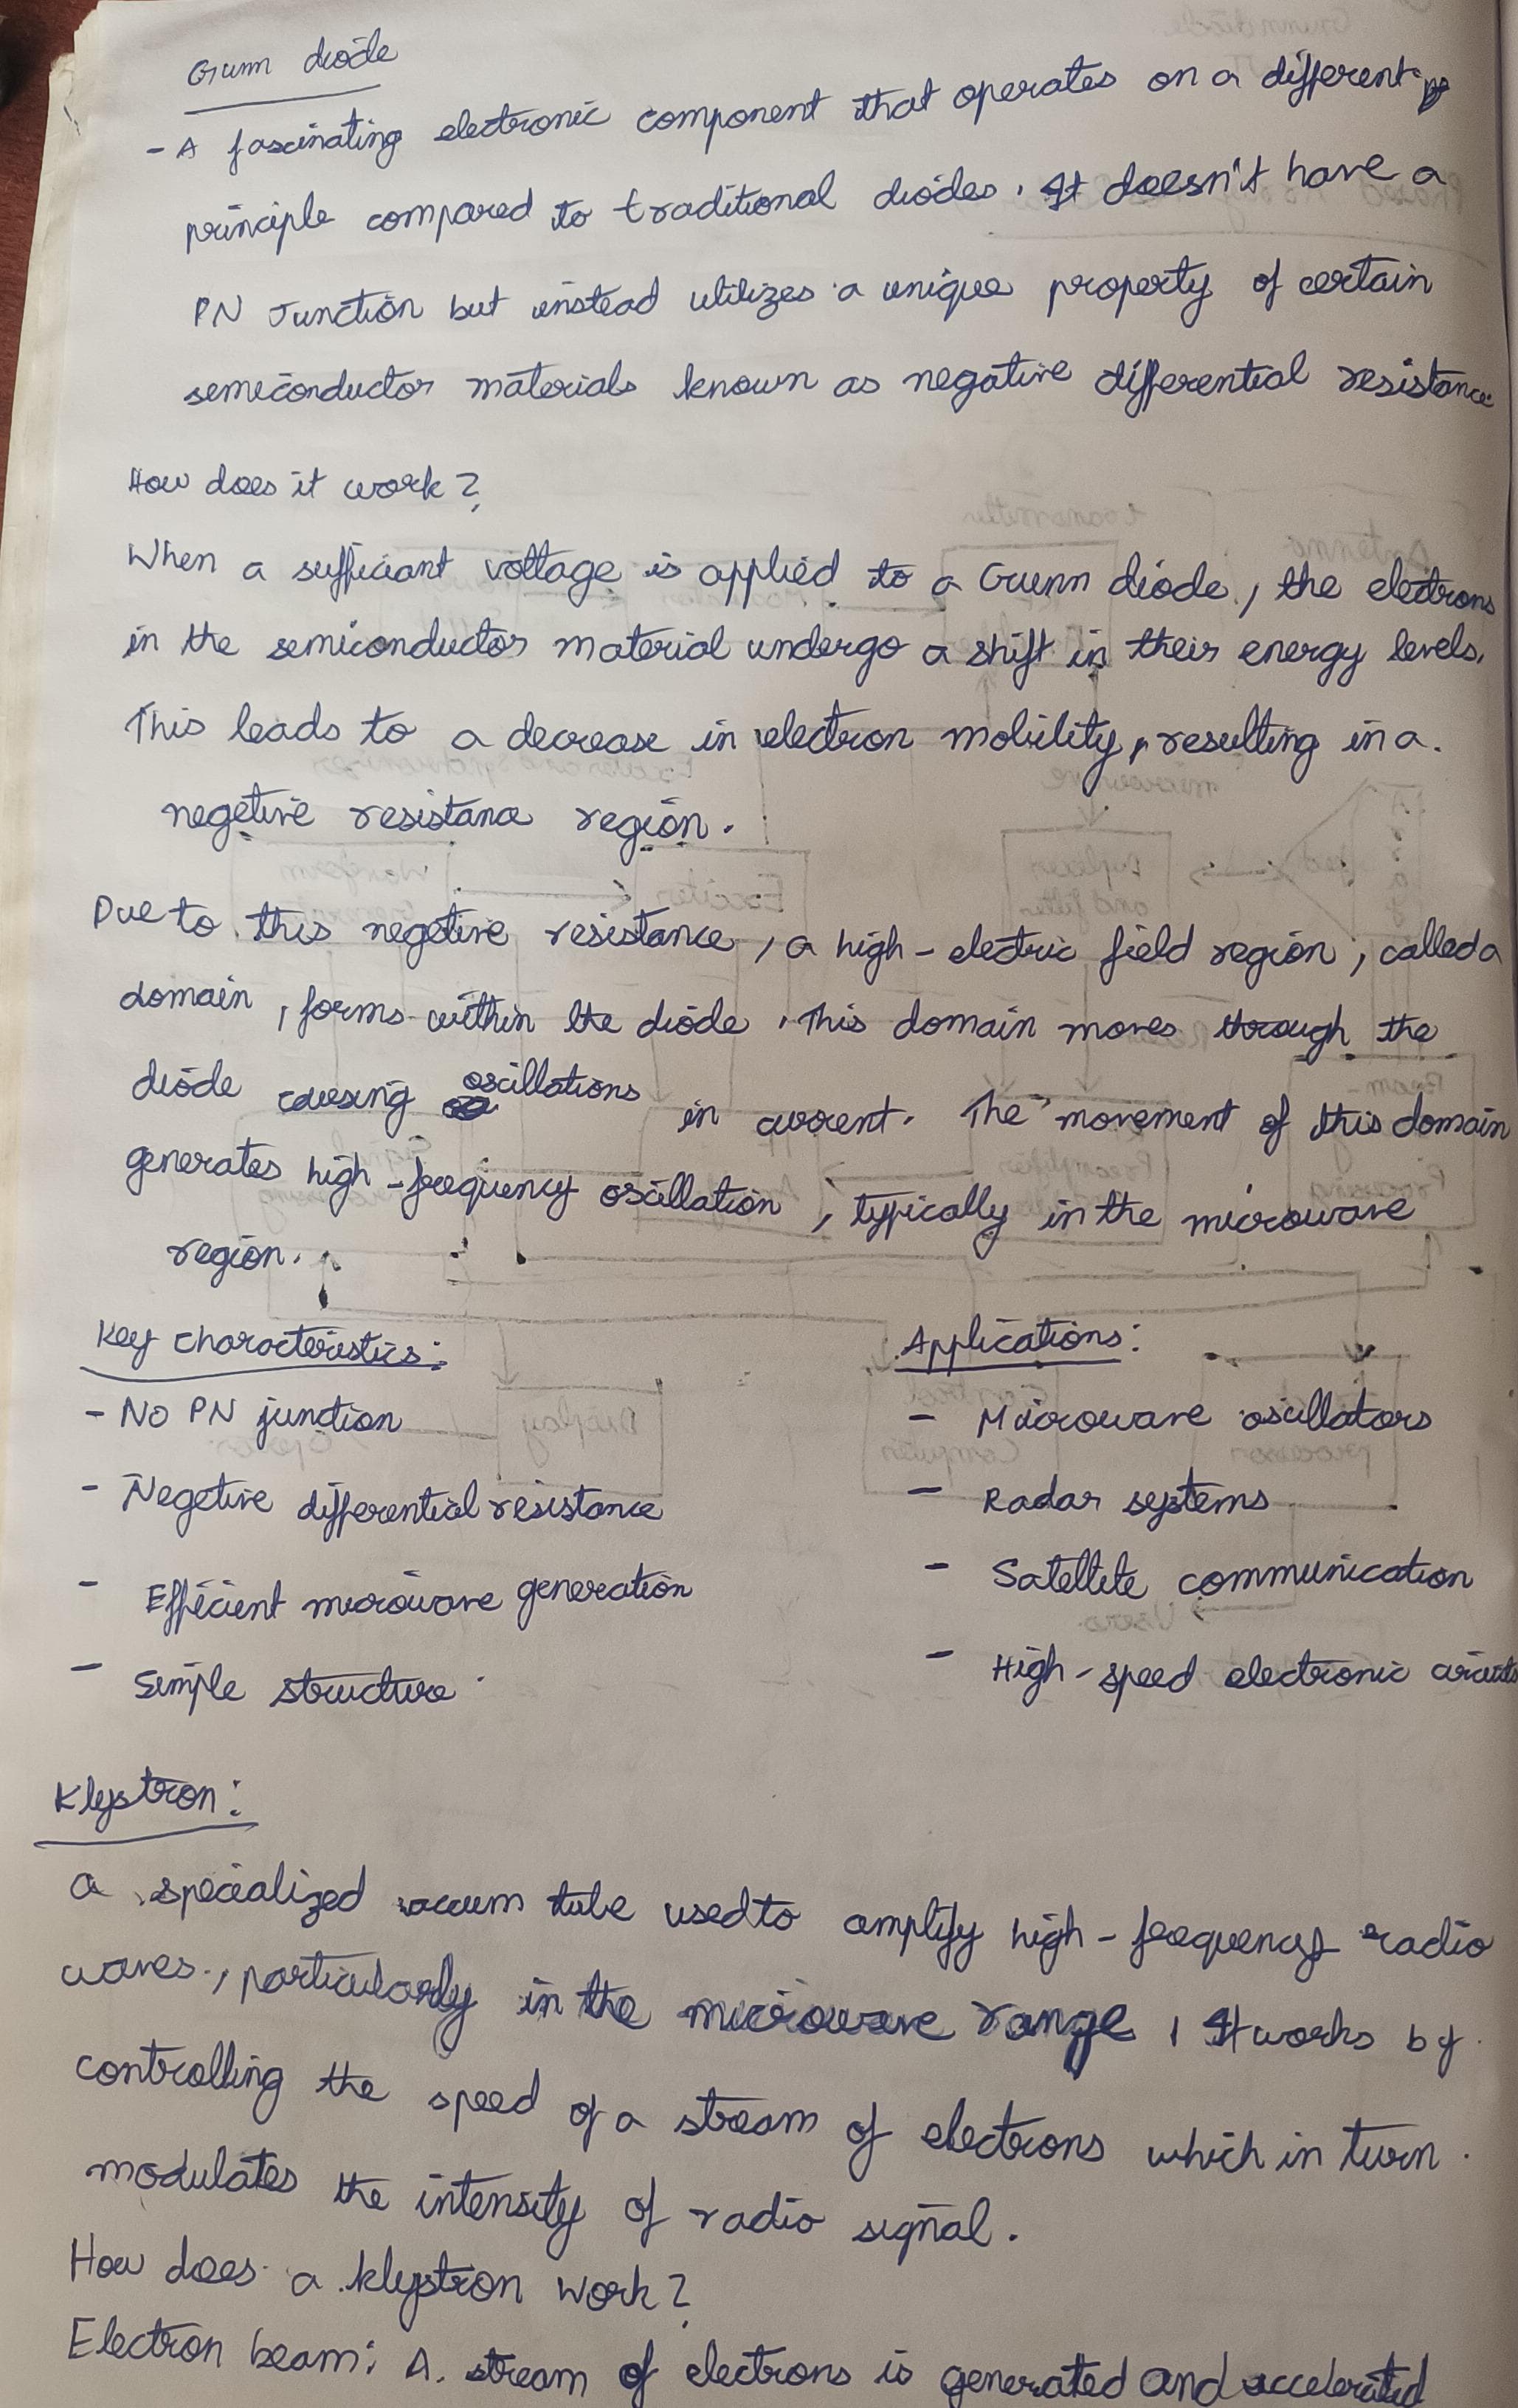 Gunn diode
- A fascinating electronic component that operates on a different
principle compared to traditional diodes. It doesn't have a
PN Junction but instead utilizes a unique property of certain
semiconductor materials known as negative differential resistance
How does it work?
When a sufficiant voltage is applied to a Gunn diode, the electrons
in the semiconductor material undergo a shift in their energy levels.
This leads to a decrease in electron mobility, resulting in a.
negetive resistance region.
Due to this negetive resistance, a high-electric field region, called a
domain, forms within the diode. This domain moves through the
diode causing oscillations in current. The movement of this domain
generates high-frequency oscillation, typically in the microwave
region.
Key characteristics:
- No PN junction
- Negetive differential resistance
- Efficient microwave generation
- Simple structure
Applications:
- Microwave oscillators
- Radar systems
- Satellite communication
- High-speed electronic circuits
Klystron:
a specialized vaccum tube used to amplify high-frequency radio
waves, particularly in the microwave range, It works by
controlling the speed of a stream of electrons which in turn
modulates the intensity of radio signal.
How does a klystron work?
Electron beam: A stream of electrons is generated and accelerated